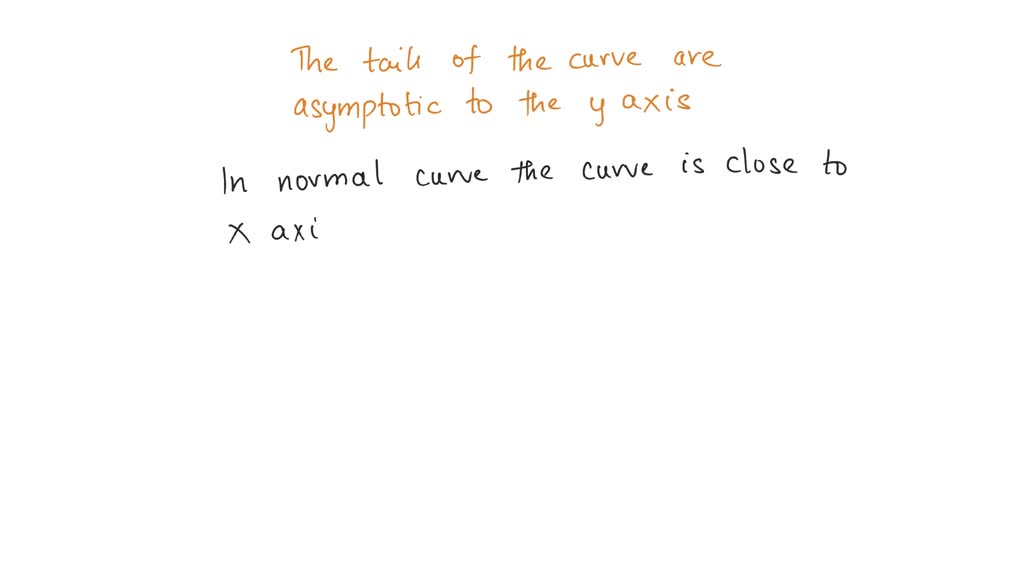 The tails of the curve are
asymptotic to the y axis
In normal curve the curve is close to
x axi